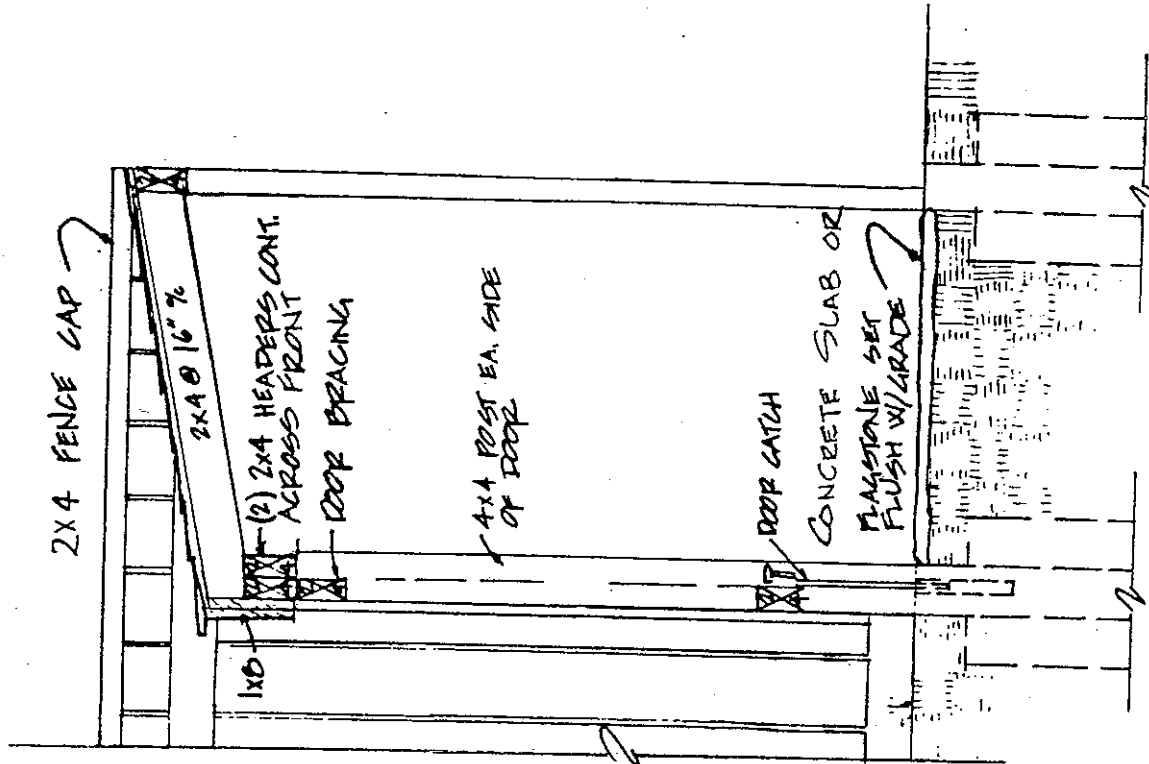 2X4 FENCE CAP
2X4 @ 16" %
(2) 2X4 HEADERS CONT.
ACROSS FRONT
DOOR BRACING
1X8
4X4 POST EA. SIDE
OF DOOR
DOOR CATCH
CONCRETE SLAB OR
FLAGSTONE SET
FLUSH W/GRADE